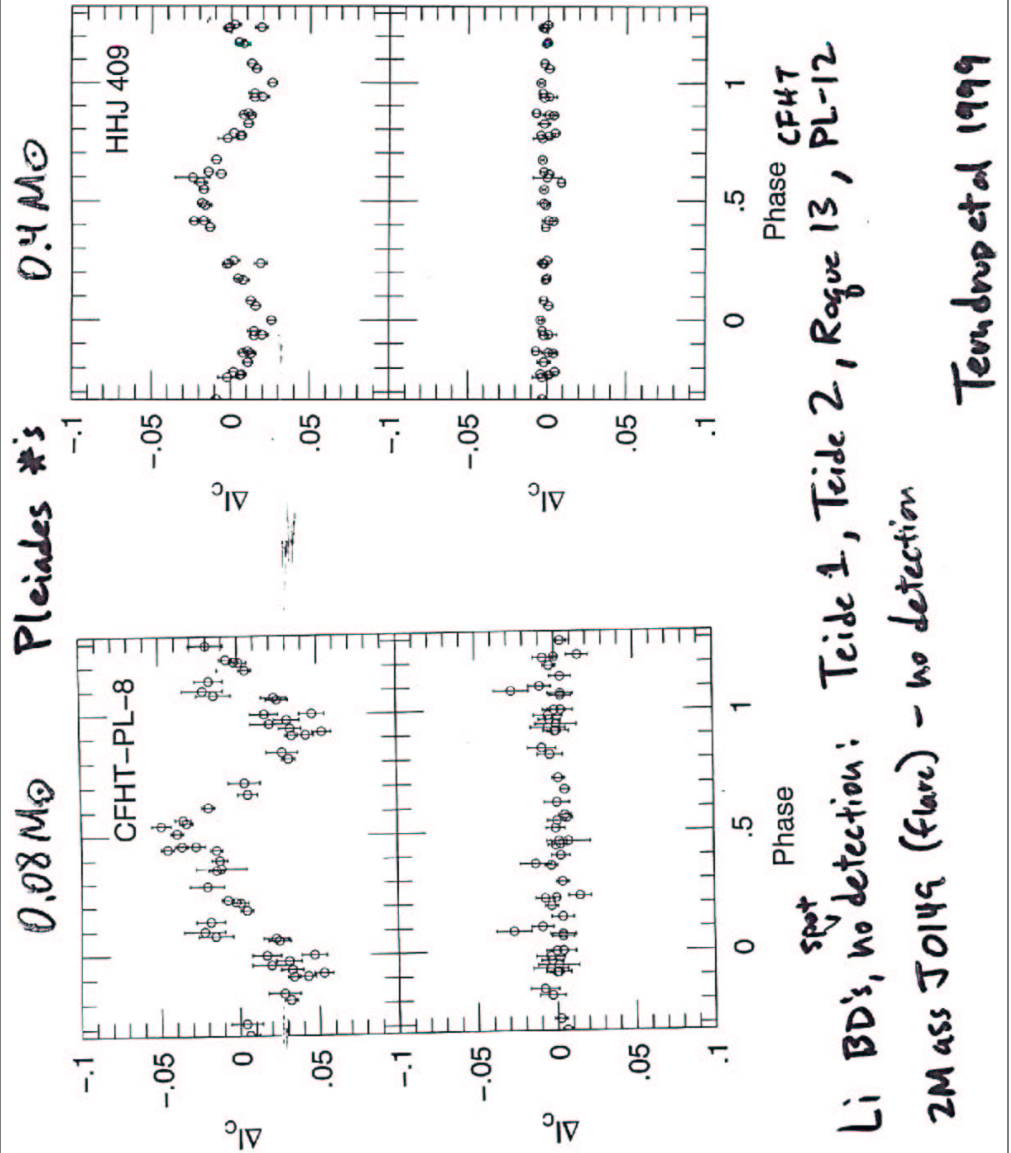 0.08 M⊙ Pleiades *'s 0.4 M⊙
CFHT-PL-8
-.1
-.05
0
.05
ΔI_C
-.1
-.05
0
.05
.1
ΔI_C
0 .5 1
Phase
HHJ 409
-.1
-.05
0
.05
ΔI_C
-.1
-.05
0
.05
.1
ΔI_C
0 .5 1
Phase
spot CFHT
Li BD's, no detection: Teide 1, Teide 2, Roque 13, PL-12
2Mass J0149 (flare) - no detection
Terndrup et al 1999